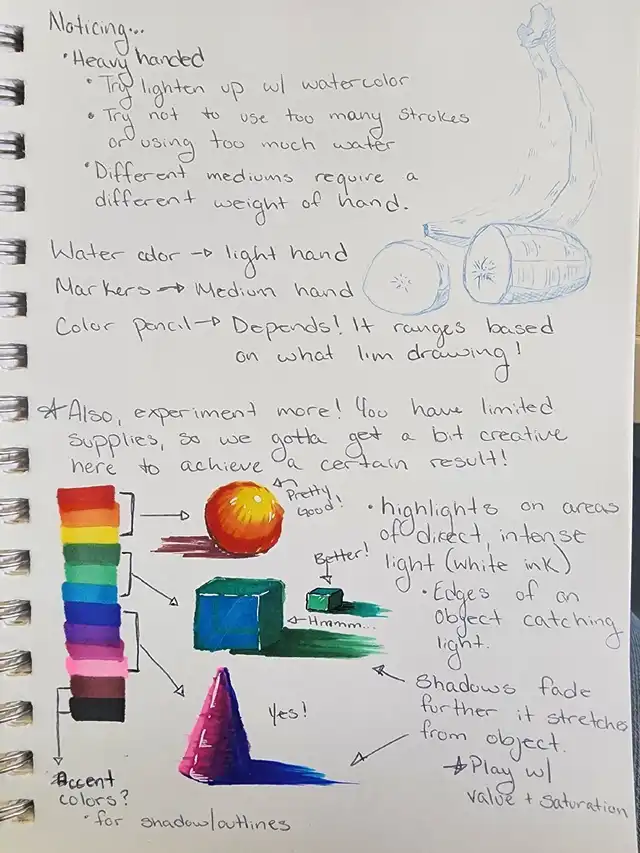 Noticing...
• Heavy handed
• Try lighten up w/ watercolor
• Try not to use too many strokes
or using too much water
• Different mediums require a
different weight of hand.
Water color → light hand
Markers → Medium hand
Color pencil → Depends! It ranges based
on what I im drawing!
☆ Also, experiment more! You have limited
supplies, so we gotta get a bit creative
here to achieve a certain result!
Pretty
Good!
Better!
Hmmm...
Yes!
• highlights on areas
of direct, intense
light (white ink)
• Edges of an
object catching
light.
Shadows fade
further it stretches
from object.
☆ Play w/
value + saturation
Accent
colors?
• for shadow/outlines